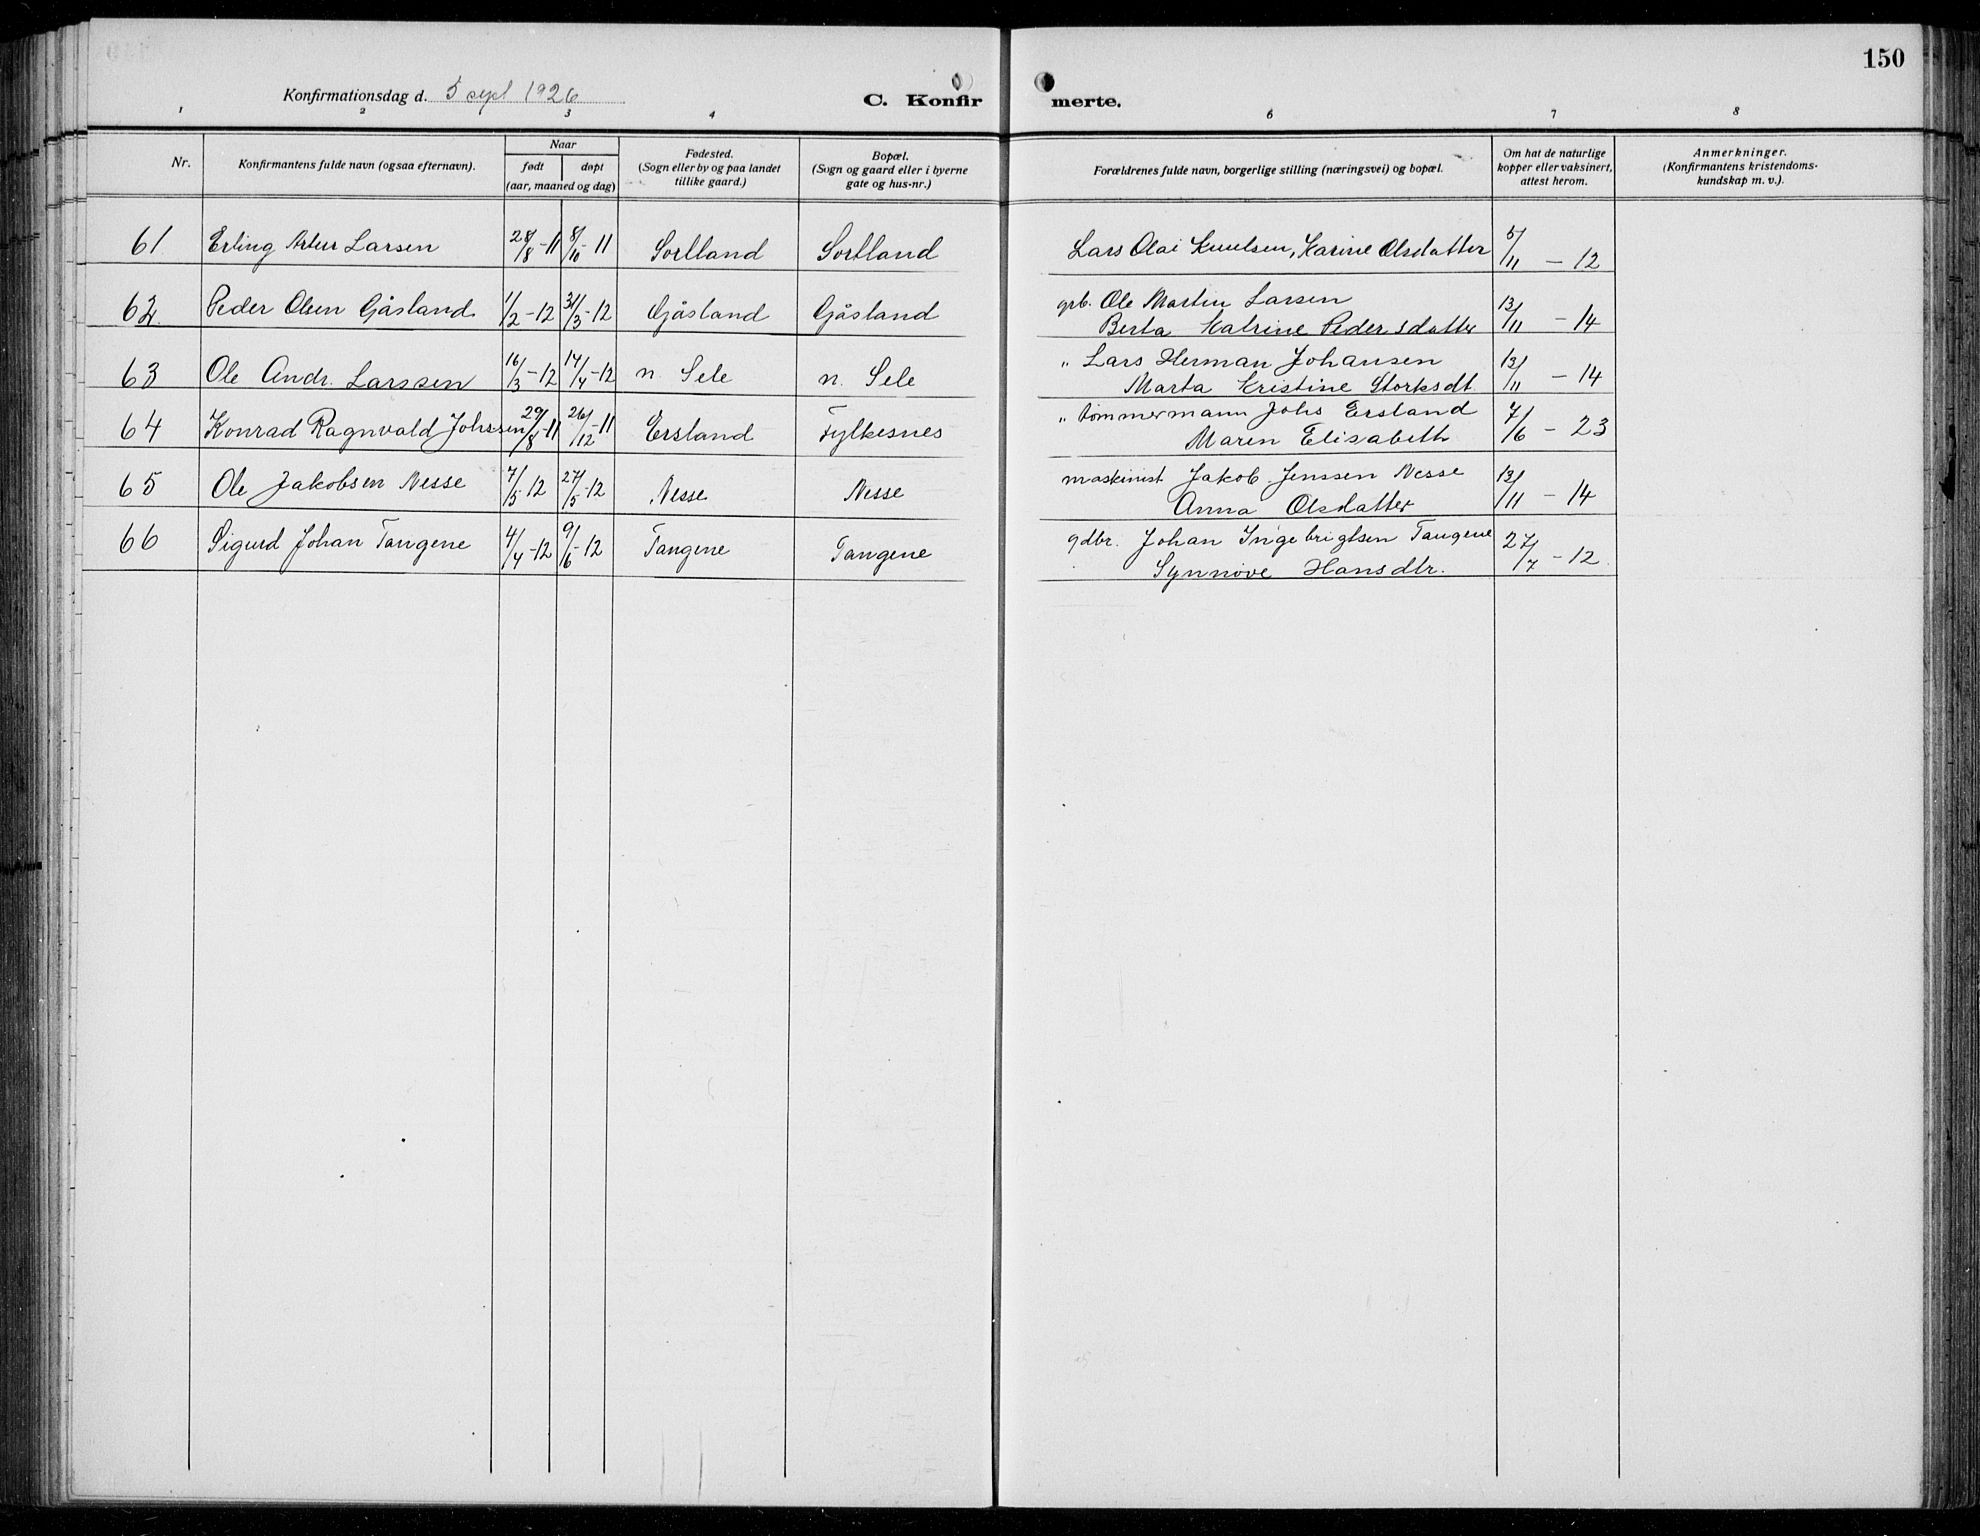 150
Konfirmationsdag d. 5 sept 1926
C. Konfir merte.
1 2 3 4 6 7 8
Nr. Konfirmantens fulde navn (ogsaa efternavn). Naar født døpt (aar, maaned og dag) Fødested. (Sogn eller by og paa landet tillike gaard.) Bopæl. (Sogn og gaard eller i byerne gate og hus-nr.) Forældrenes fulde navn, borgerlige stilling (næringsvei) og bopæl. Om hat de naturlige kopper eller vaksinert, attest herom. Anmerkninger. (Konfirmantens kristendoms-kundskap m. v.).
61 Erling Artur Larsen 28/8-11 8/10-11 Sortland Sortland Lars Olai Knutsen, Karine Olsdatter 5/11 - 12
62. Peder Olsen Gåsland 1/2-12 31/3-12 Gåsland Gåsland grb. Ole Martin Larsen
Berta Katrine Pedersdatter 13/11 - 14
63 Ole Andr. Larssen 16/3-12 14/4-12 n. Sele n. Sele " Lars Herman Johansen
Marta Kristine Storksdt. 13/11 - 14
64 Konrad Ragnvald Johssen 29/8-11 26/12-11 Ersland Fylkesnes " tømmermann Johs Ersland
Maren Elisabeth 7/6 - 23
65 Ole Jakobsen Nesse 7/5-12 27/5-12 Nesse Nesse maskinist Jakob Jenssen Nesse
Anna Olsdatter 13/11 - 14
66 Sigurd Johan Tangene 4/4-12 9/6-12 Tangene Tangene gdbr. Johan Ingebrigtsen Tangene
Synnøve Hansdtr. 27/7 - 12